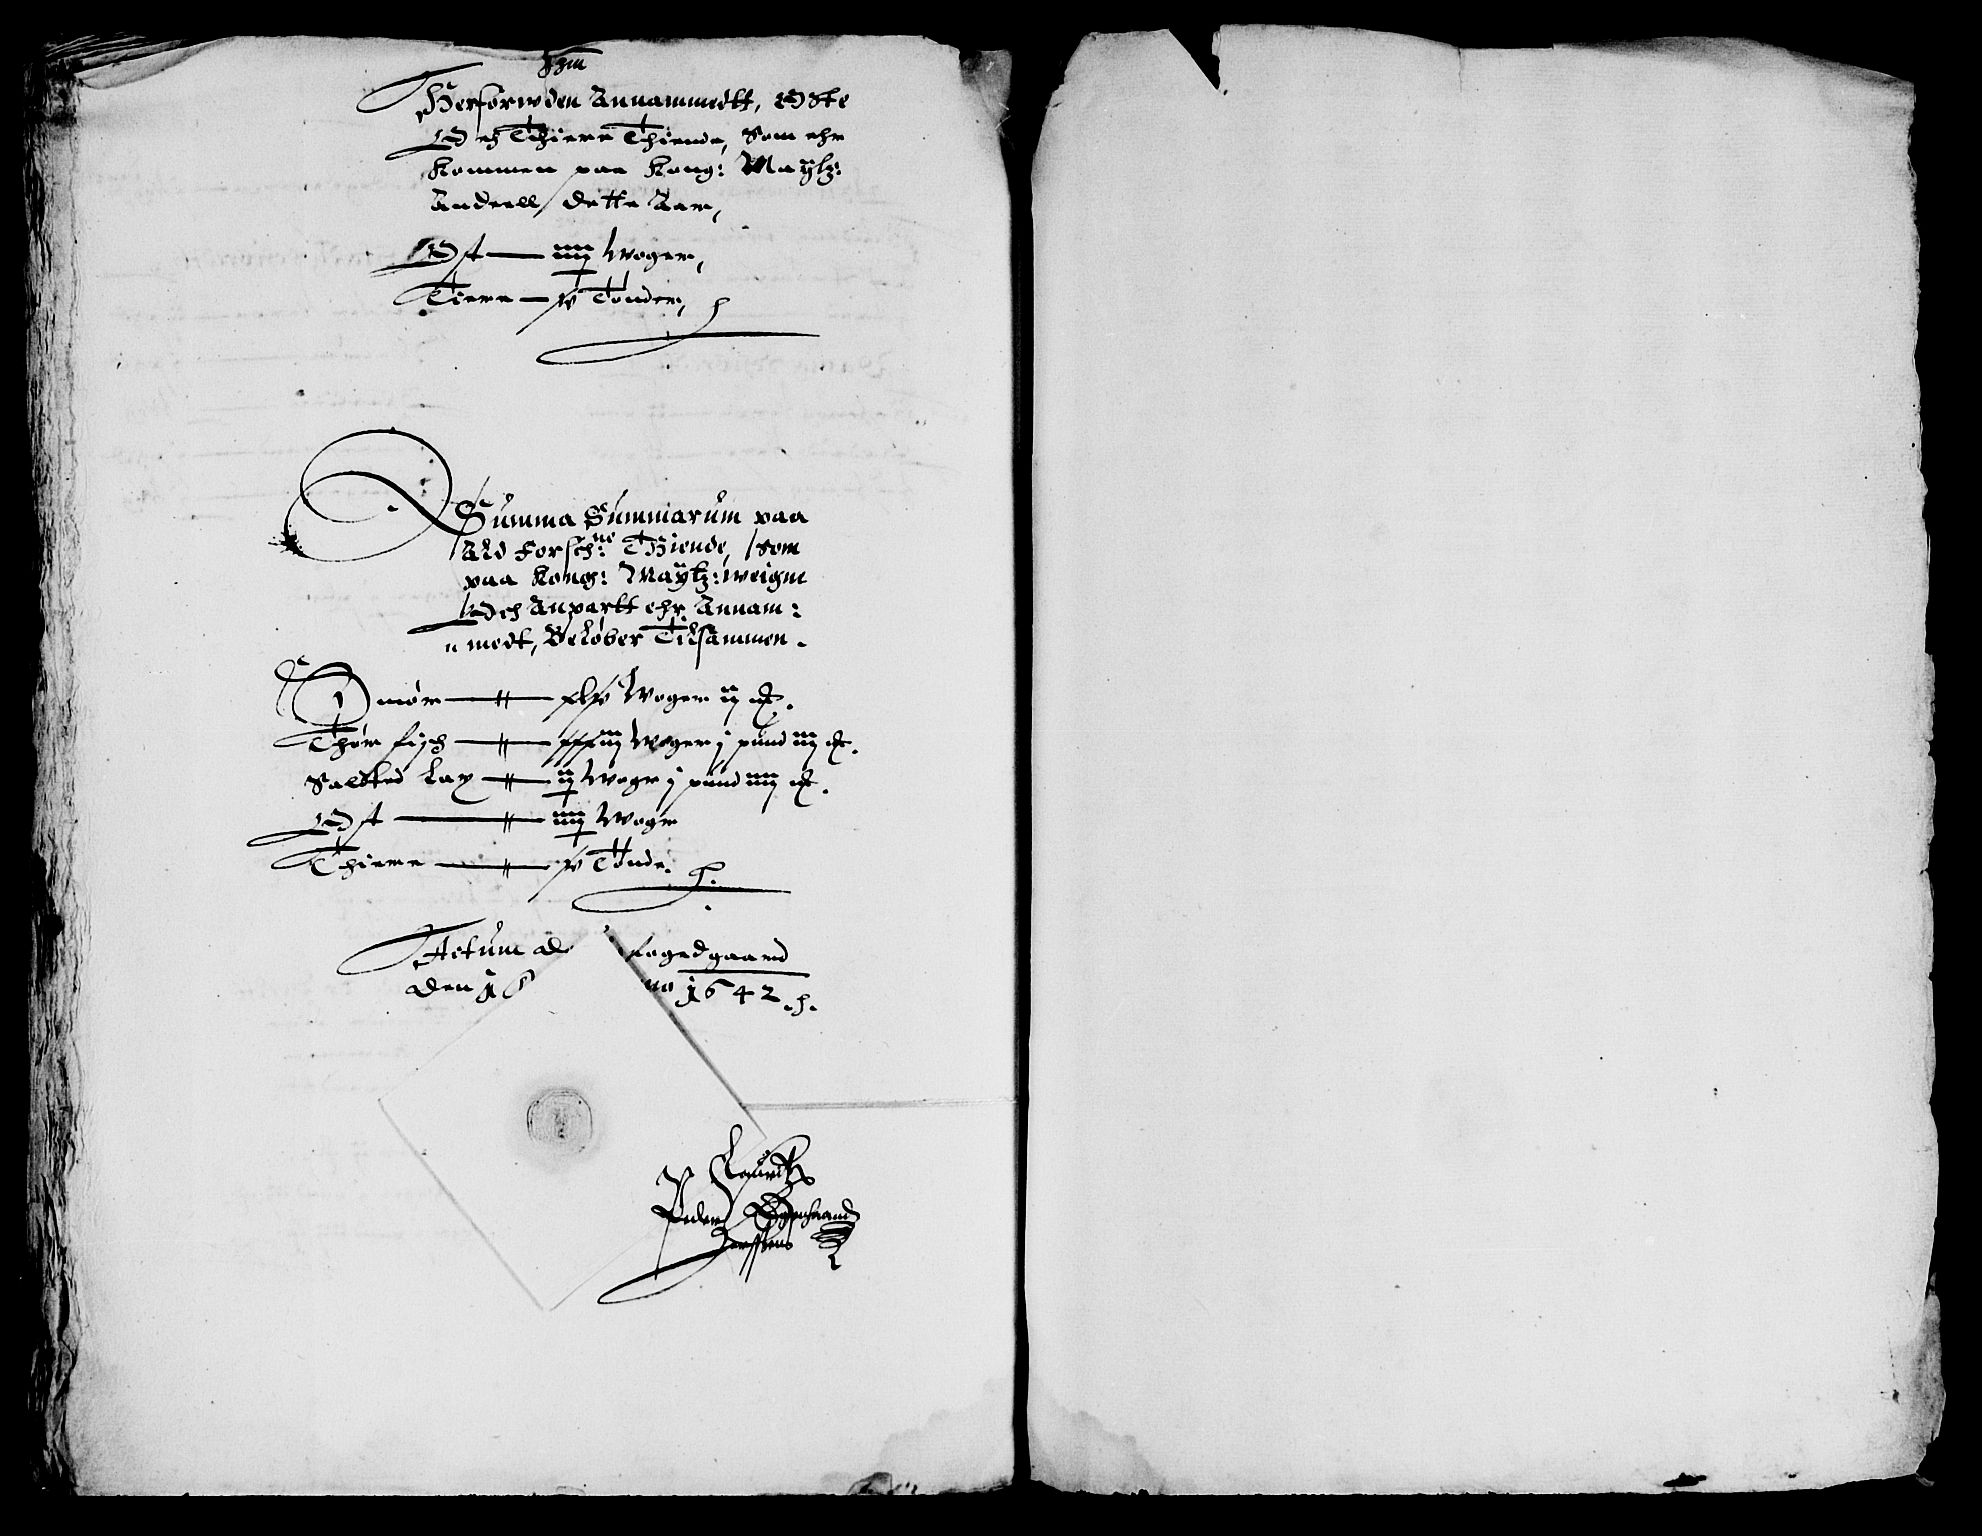 Jtem
Herforuden Annammedtt, Oste
Och Thiere Thiende, Som ehr
Kommen paa Kong: Maytz:
Andeell dette Aar,
Ost — iiij Woger,
Tiere — xv Tönder,
Summa Summarum paa
Ald Forsch:ne Thiende, som
paa Kong: Maytz: weigne
Och Anpartt ehr Annam:
medt, Beløber Tilsammen.
Smør — xlv Woger ij
Thør fisch — xxxiij Woger j pund iij
Salted Lax — ij Woge j pund iiij
Ost — iiij Woge
Thiere — xv Tönde.
Actum fogedgaard
den 1642.
Lauritz
Peder